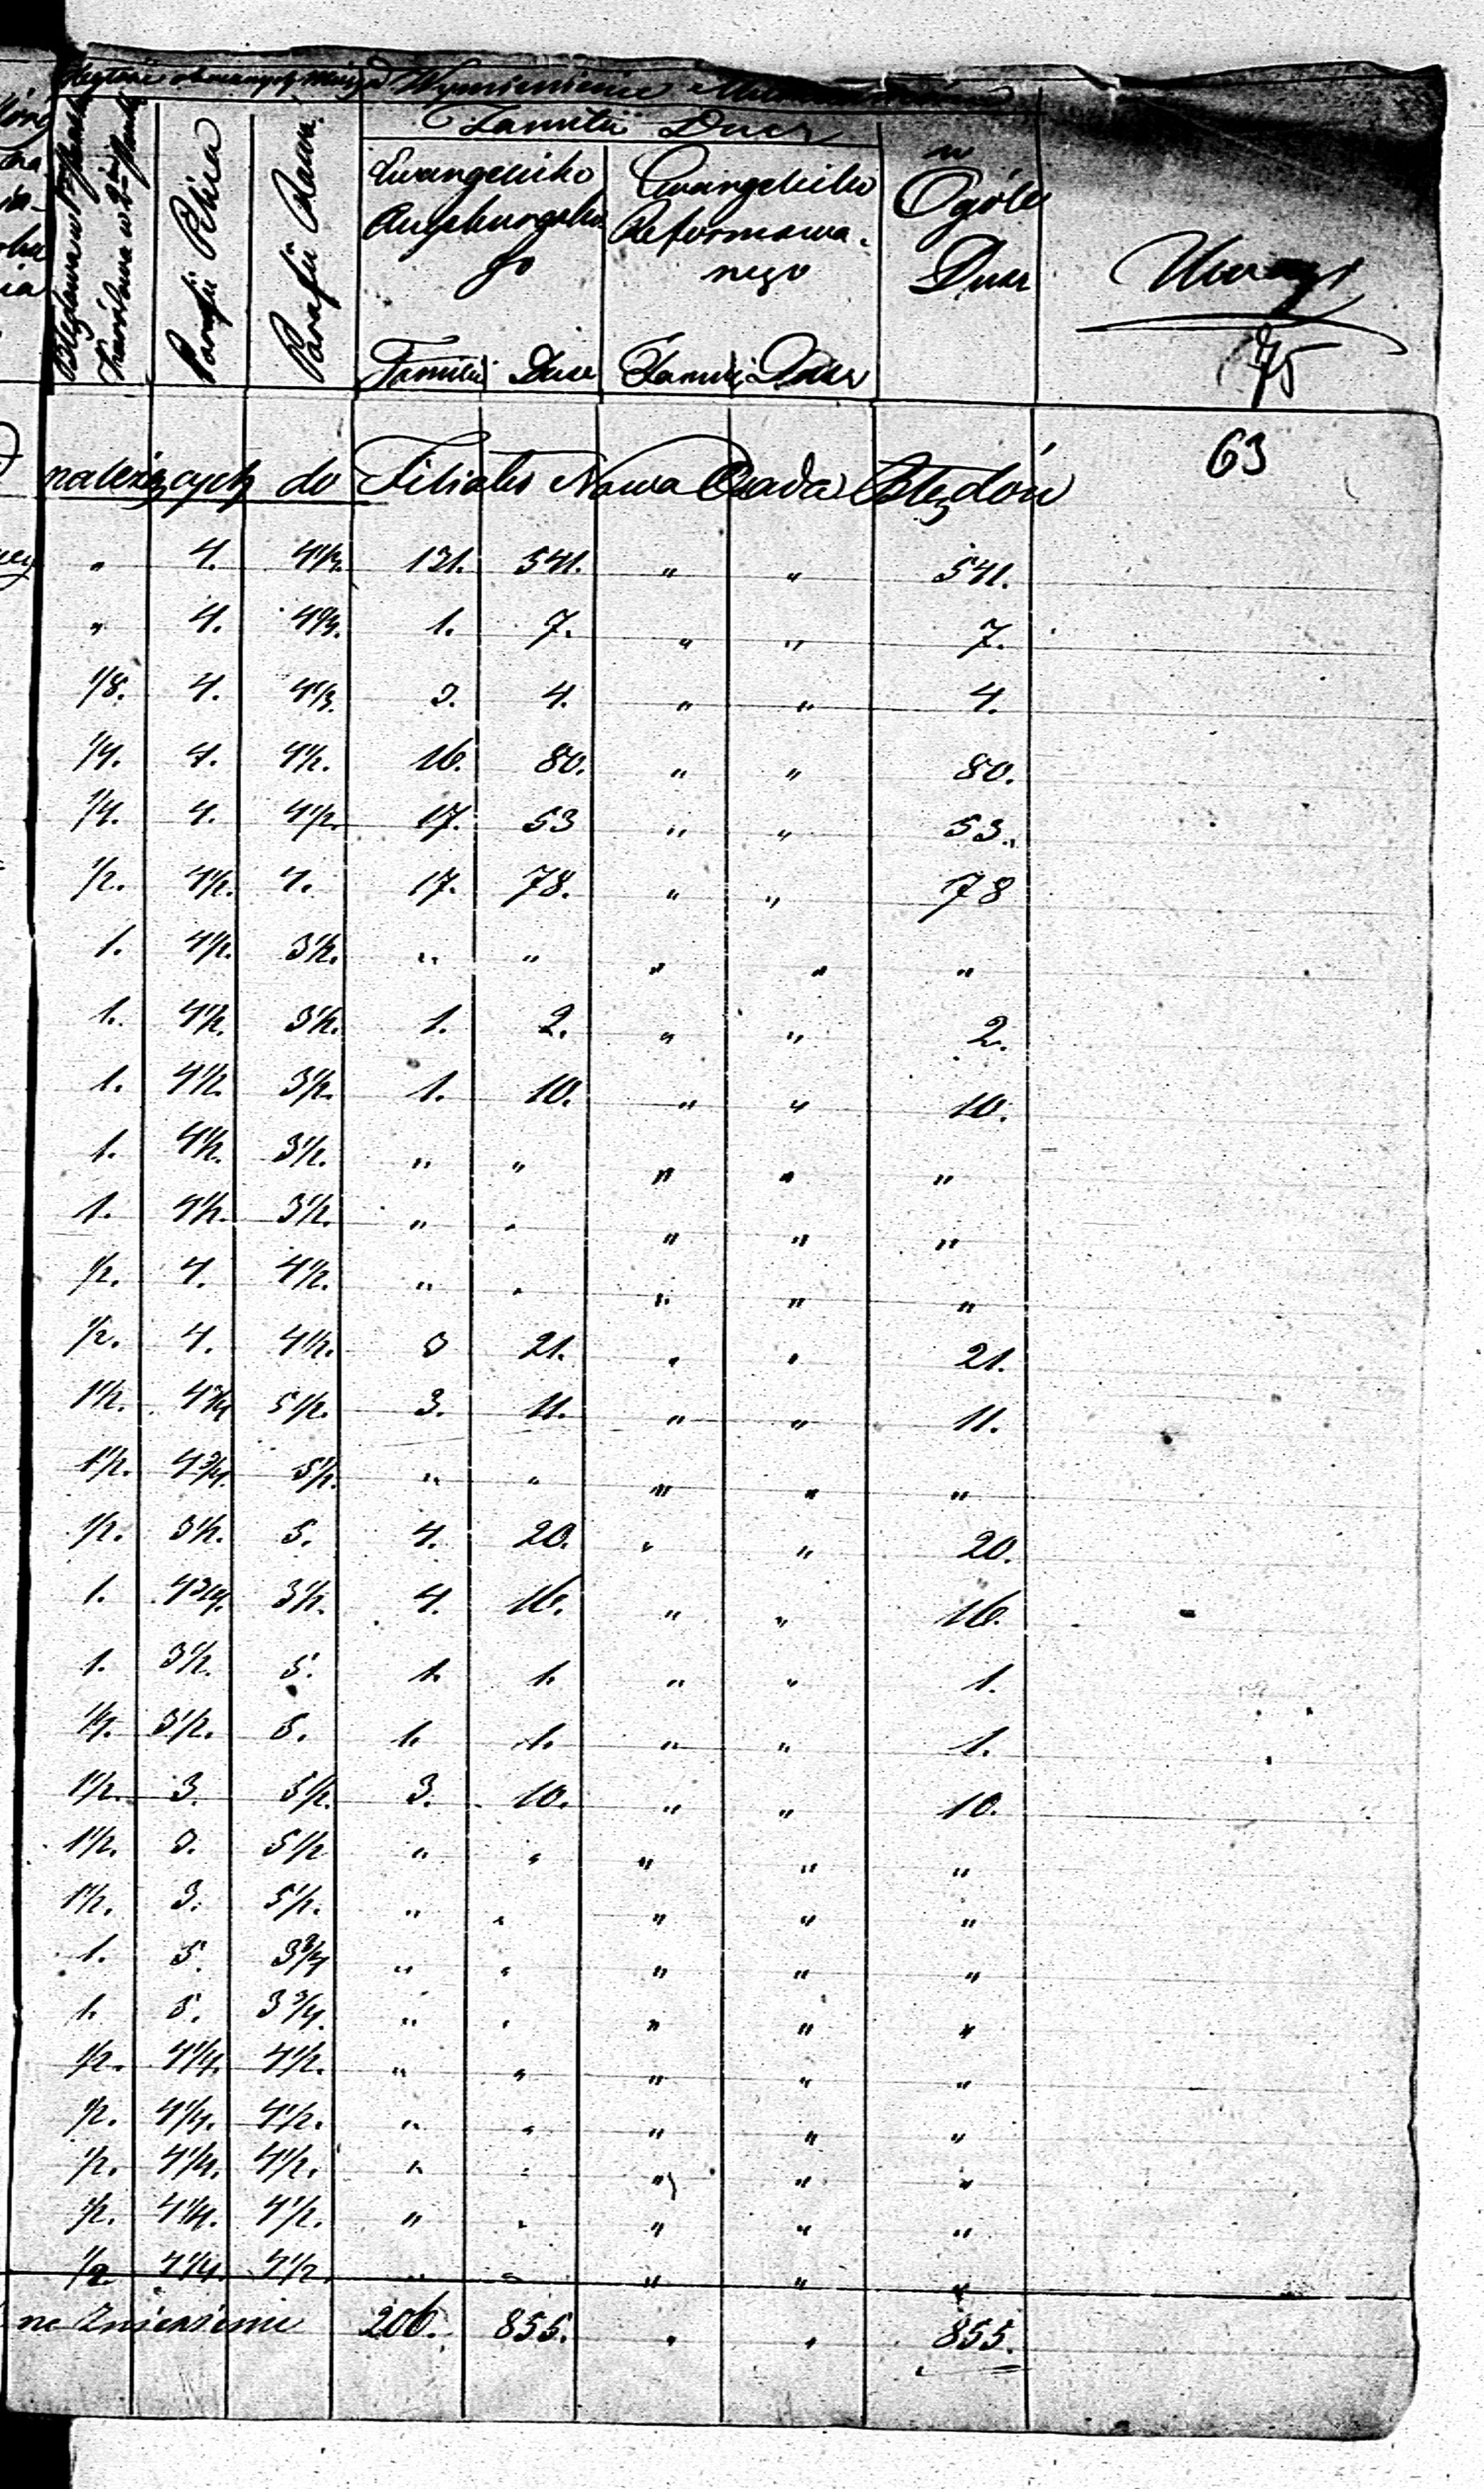 Wymienienie
Familii Dusz
Parafii
Parafii
Ewangelicko
Augsburgskie
go
Ewangelicko
Reformowa-
nego
w
Ogóle
Dusz
Uwagi
Familii Dusz Familii Dusz
75
63
należących do Filiału Nowa Osada Błędów
" 4. 4½. 131. 541. " " 541.
" 4. 4½. 1. 7. " " 7.
1/8. 4. 4½. 2. 4. " " 4.
¼. 4. 4½. 16. 80. " " 80.
¼. 4. 4½. 17. 53 " " 53.
½. 4½. 4. 17. 78. " " 78
1. 4½. 3½. " " " " "
1. 4½. 3½. 1. 2. " " 2.
1. 4½. 3½. 1. 10. " " 10.
1. 4½. 3½. " " " " "
1. 4½. 3½. " " " " "
½. 4. 4½. " " " " "
½. 4. 4½. 21. " " 21.
1½. 4¾ 5½. 3. 11. " " 11.
1½. 4¾. 5½. " " " " "
½. 3½. 5. 4. 20. " " 20.
1. 4¾. 3½. 4. 16. " " 16.
1. 3½. 5. 1. 1. " " 1.
¼. 3½. 5. 1. 1. " " 1.
1½. 3. 5½. 3. 10. " " 10.
1½. 3. 5½ " " " " "
1½. 3. 5½. " " " " "
1. 5. 3¾ " " " " "
1. 5. 3¾. " " " " "
½. 4¼. 4½. " " " " "
½. 4¼. 4½. " " " " "
½. 4¼. 4½. " " " " "
½. 4¼. 4½. " " " " "
½ 4¼. 4½. " " " " "
ne Zniesienie 206. 855. " " 855.